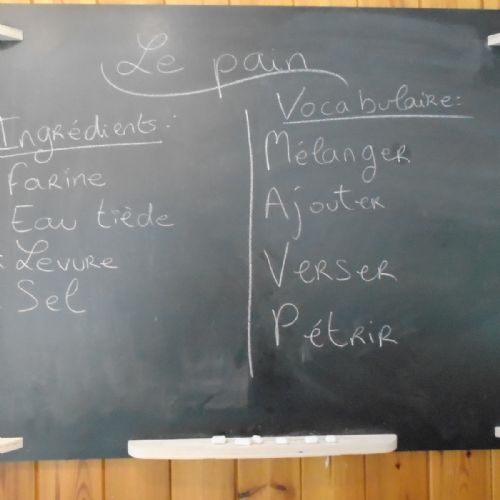 Le pain
Ingrédients:
Farine
Eau tiède
Levure
Sel
Vocabulaire:
Mélanger
Ajouter
Verser
Pétrir